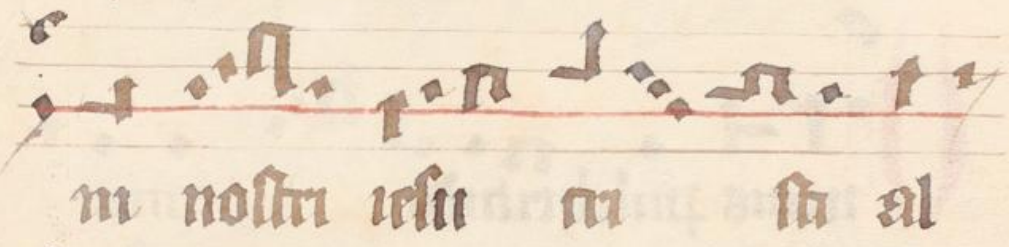 ni nostri iesu cri sti al